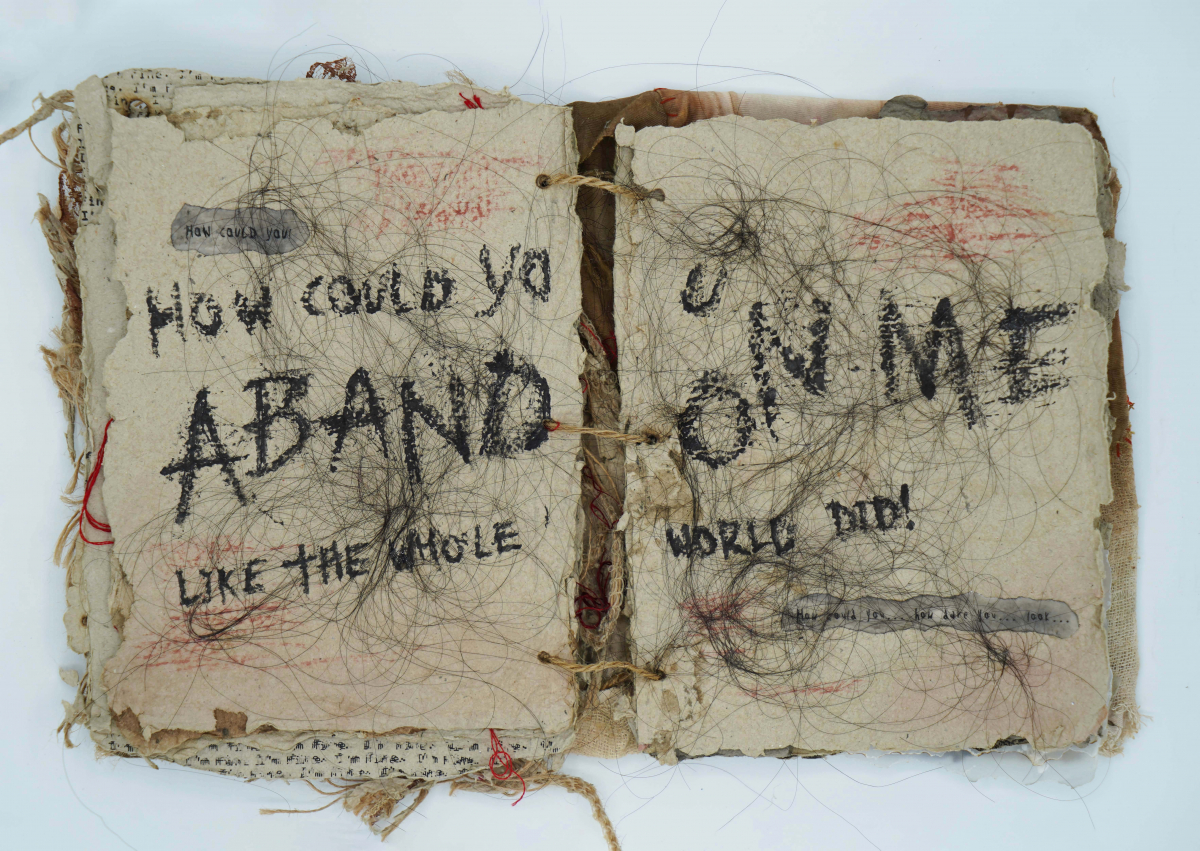 How could you!
HOW COULD YO U
ABAND ON ME
LIKE THE WHOLE WORLD DID!
How could you... how dare you... look...